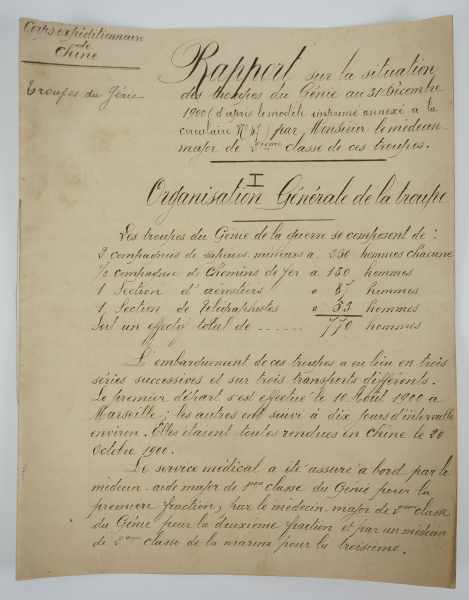 Corps expéditionnaire
de
Chine
Troupes du Génie
Rapport sur la situation
des troupes du Génie au 31 Décembre
1900 (d'après le modèle imprimé annexé à la
circulaire N° ) par Monsieur le médecin-
major de 2ème classe de ces troupes.
I
Organisation Générale de la troupe
Les troupes du Génie de la guerre se composent de :
2 compagnies de sapeurs mineurs à 250 hommes chacune
1/2 compagnie de Chemins de fer à 150 hommes
1 Section d'aérostiers " 87 hommes
1 Section de Télégraphistes " 33 hommes
Soit un effectif total de ...... 770 hommes
L'embarquement de ces troupes a eu lieu en trois
séries successives et sur trois transports différents.
Le premier départ s'est effectué le 10 Août 1900 à
Marseille ; les autres ont suivi à dix jours d'intervalle
environ. Elles étaient toutes rendues en Chine le 20
Octobre 1900.
Le service médical a été assuré à bord par le
médecin-aide major de 1ère classe du Génie pour la
première fraction, par le médecin major de 2ème classe
du Génie pour la deuxième fraction et par un médecin
de 2ème classe de la marine pour la troisième.